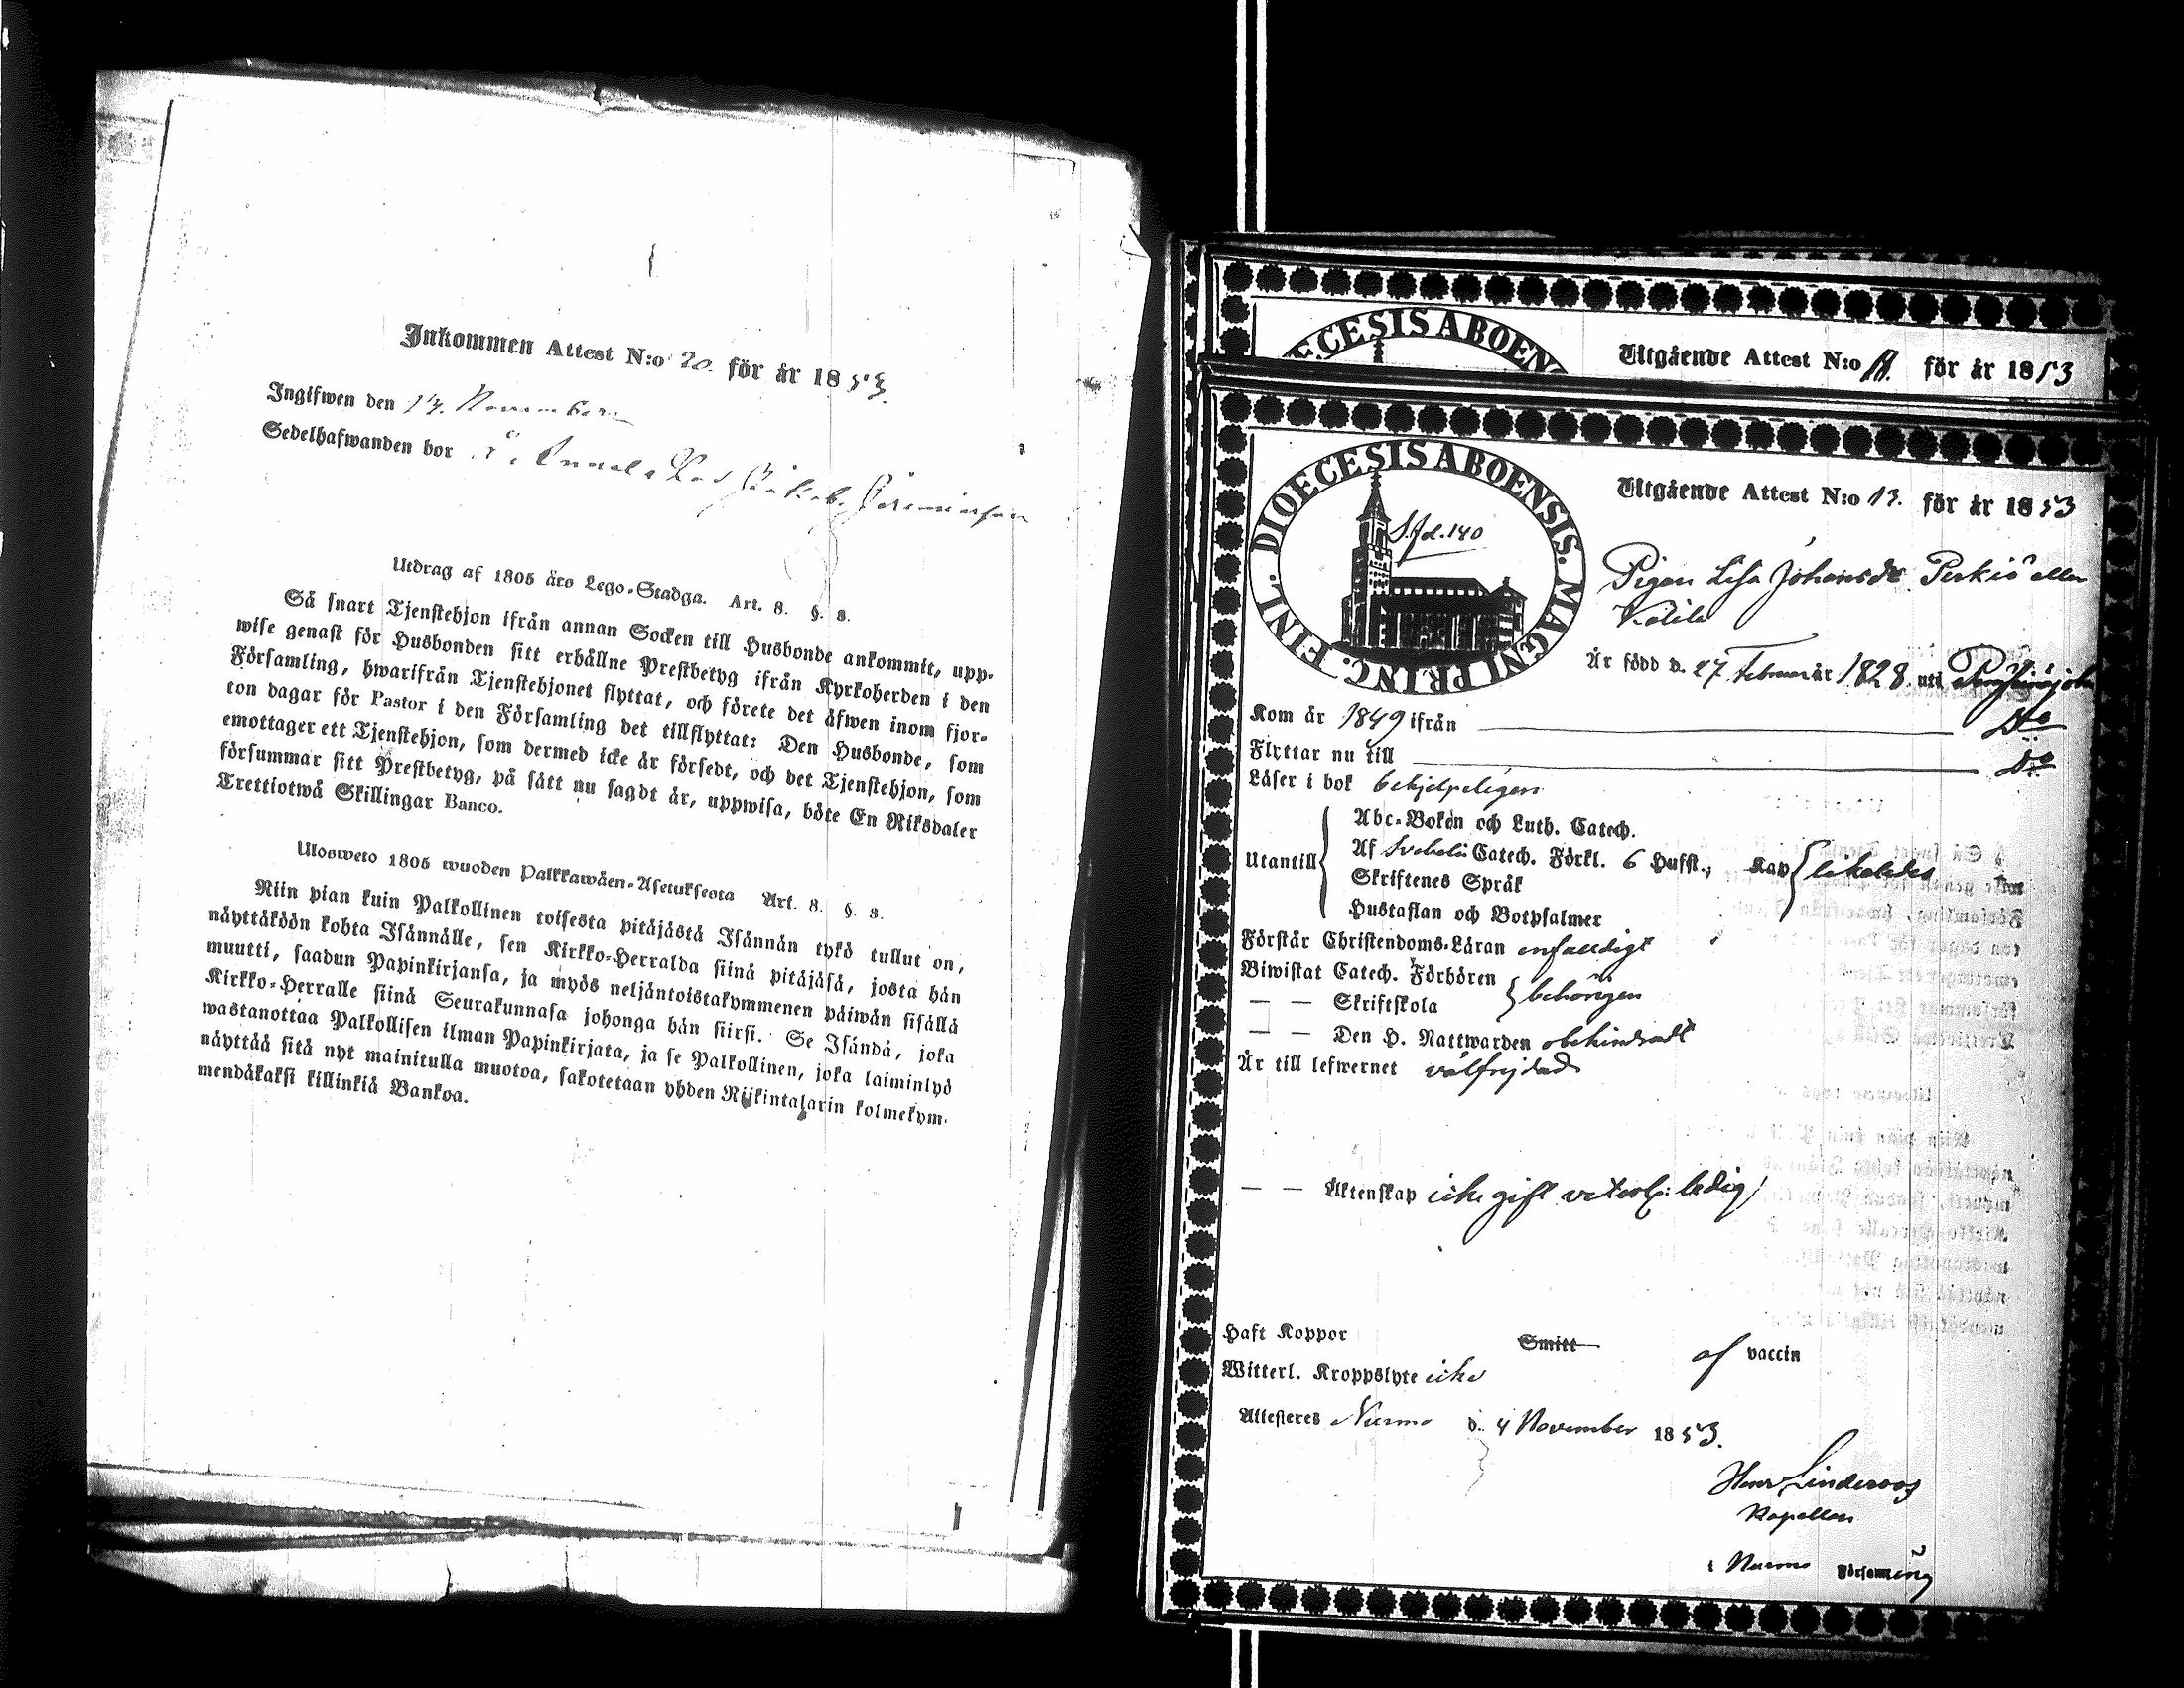 Inkommen Attest N:o 20. för år 1853.
Ingifwen den 13. November
Sedelhafwanden bor
Utdrag af 1805 års Lego-Stadga. Art. 8. §. 3.
Så snart Tjenstehjon ifrån annan Socken till Husbonde ankommit, upp-
wise genast för Husbonden sitt erhållne Prestbetyg ifrån Kyrkoherden i den
Församling, hwarifrån Tjenstehjonet flyttat, och förete det äfwen inom fjor-
ton dagar för Pastor i den Församling det tillflyttat: Den Husbonde, som
emottager ett Tjenstehjon, som dermed icke är försedt, och det Tjenstehjon, som
försummar sitt Prestbetyg, på sätt nu sagdt är, uppwisa, böte En Riksdaler
Trettiotwå Skillingar Banco.
Ulosweto 1805 wuoden Palkkawäen-Asetuksesta Art. 8. §. 3.
Niin pian kuin Palkollinen toisesta pitäjästä Isännän tykö tullut on,
näyttäköön kohta Isännälle, sen Kirkko-Herralda siinä pitäjäsä, josta hän
muutti, saadun Papinkirjansa, ja myös neljäntoistakymmenen päiwän sisällä
Kirkko-Herralle siinä Seurakunnasa johonga hän siirsi. Se Isändä, joka
wastanottaa Palkollisen ilman Papinkirjata, ja se Palkollinen, joka laiminlyö
näyttää sitä nyt mainitulla muotoa, sakotetaan yhden Riikintalarin kolmekym-
mendäkaksi killinkiä Bankoa.
DIOECESIS ABOEN
Utgående Attest N:o för år 1853
DIOECESIS ABOENSIS. MAGNI PRINC. FINL.
S.fd. 140
Utgående Attest N:o 13. för år 1853
Pigan Lisa Johansdr Perkiö eller
Är född d. 27 Februar år 1828. uti
Kom år 1849 ifrån Do
Flyttar nu till Do
Läser i bok behjelpeligen
Utantill Abc-Boken och Luth. Catech.
Af Svebelii Catech. Förkl. 6 Hufst., Kap likaledes
Skriftenes Språk
Hustaflan och Botpsalmer
Förstår Christendoms-Läran enfaldigt
Biwistat Catech. Förhören behörigen
— — Skriftskola
— — Den H. Nattwarden obehindradt
Är till lefwernet välfrejdad
— — Äktenskap icke gift veterl: ledig
Haft Koppor Smitt af vaccin
Witterl. Kroppslyte icke
Attesteres Nurmo d. 4 November 1853.
Henr Linderoos
Kapellan
i Nurmo Församling